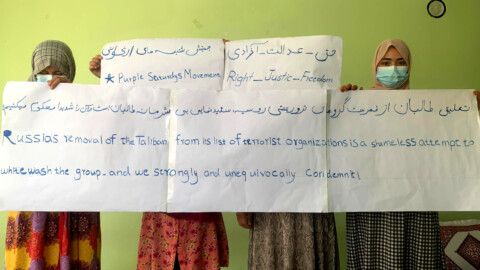 حق - عدالت - آزادی
جنبش شنبه های ارغوانی
* Purple Saturndys Movement
Right_Justic_Freedom
تعلیق طالبان از فهرست گروه های تروریستی روسیه، سفید نمایی بی شرمانه طالبان است و آن را شدیدا محکوم میکنیم
Russias removal of the Taliban from its list of terrorist organizations is a shameless attempt to
whitewash the group. and we strongly and unequivocally condemnt!